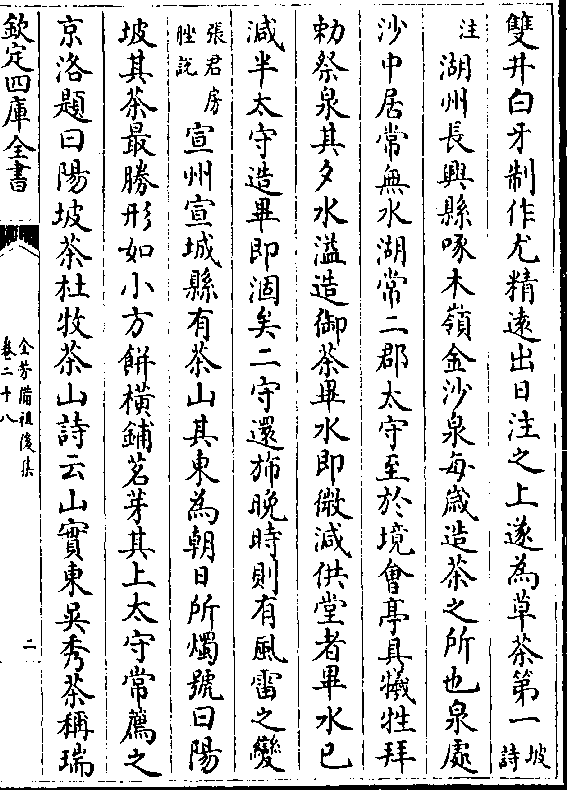 雙井白牙制作尤精遠出日注之上遂為草茶第一坡詩
注湖州長興縣啄木嶺金沙泉每歲造茶之所也泉處
沙中居常無水湖常二郡太守至於境會亭具犧牲拜
勅祭泉其夕水溢造御茶畢水即微減供堂者畢水已
減半太守造畢即涸矣二守還斾晚時則有風雷之變
張君房脞説宣州宣城縣有茶山其東為朝日所燭號曰陽
坡其茶最勝形如小方餅橫鋪茗芽其上太守常薦之
京洛題曰陽坡茶杜牧茶山詩云山實東吳秀茶稱瑞
欽定四庫全書
全芳備祖後集
卷二十八
二